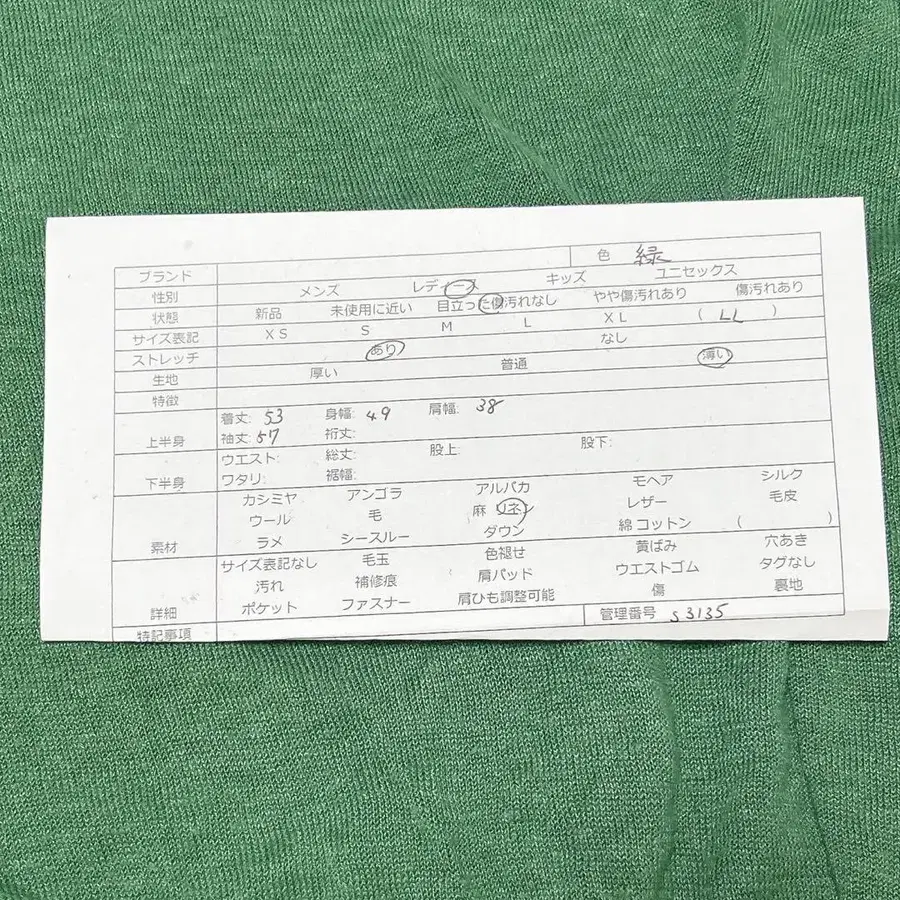 ブランド 色 緑
性別 メンズ レディース キッズ ユニセックス
状態 新品 未使用に近い 目立った傷汚れなし やや傷汚れあり 傷汚れあり
サイズ表記 XS S M L XL ( LL )
ストレッチ あり なし
生地 厚い 普通 薄い
特徴
上半身 着丈: 53 身幅: 49 肩幅: 38
袖丈: 57 裄丈:
下半身 ウエスト: 総丈: 股上: 股下:
ワタリ: 裾幅:
素材 カシミヤ アンゴラ アルパカ モヘア シルク
ウール 毛 麻 リネン レザー 毛皮
ラメ シースルー ダウン 綿 コットン ( )
詳細 サイズ表記なし 毛玉 色褪せ 黄ばみ 穴あき
汚れ 補修痕 肩パッド ウエストゴム タグなし
ポケット ファスナー 肩ひも調整可能 傷 裏地
特記事項 管理番号 S3135